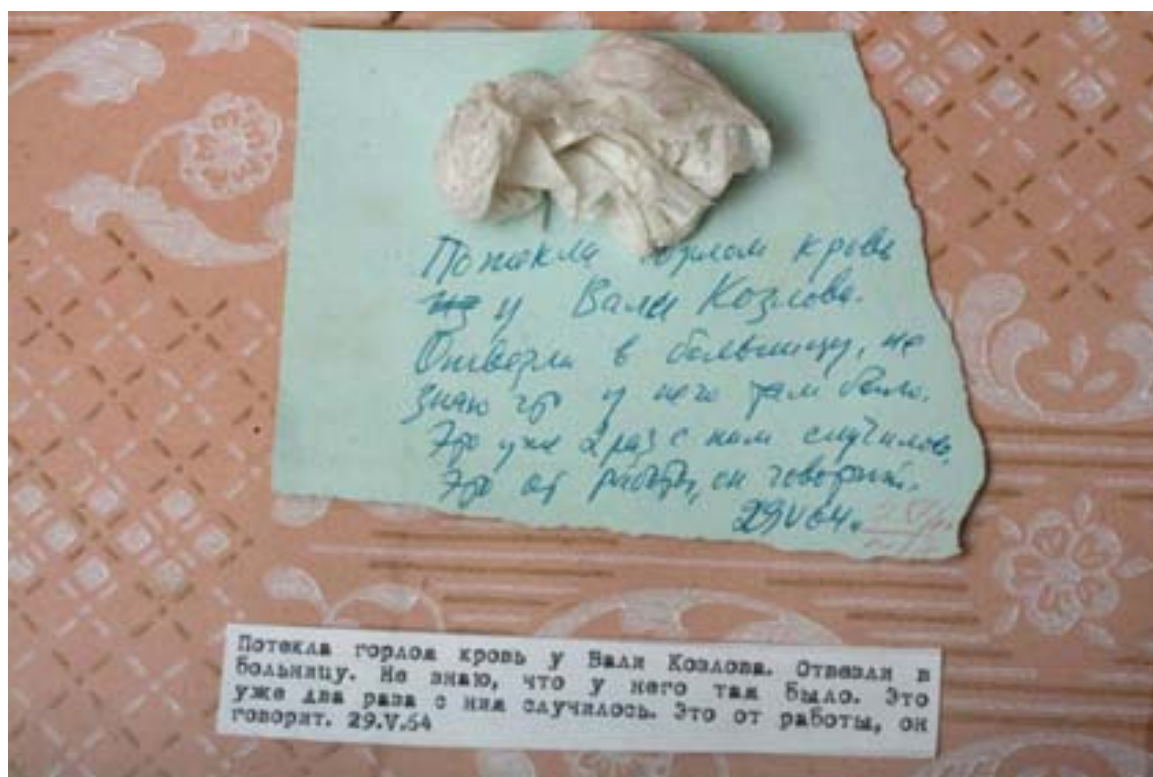 Потекла горлом кровь
из у Вали Козлова.
Отвезли в больницу, не
знаю что у него там было.
Это уже 2 раз с ним случилось,
Это от работы, он говорит.
29 V 64.
Потекла горлом кровь у Вали Козлова. Отвезли в
больницу. Не знаю, что у него там было. Это
уже два раза с ним случилось. Это от работы, он
говорит. 29.V.64